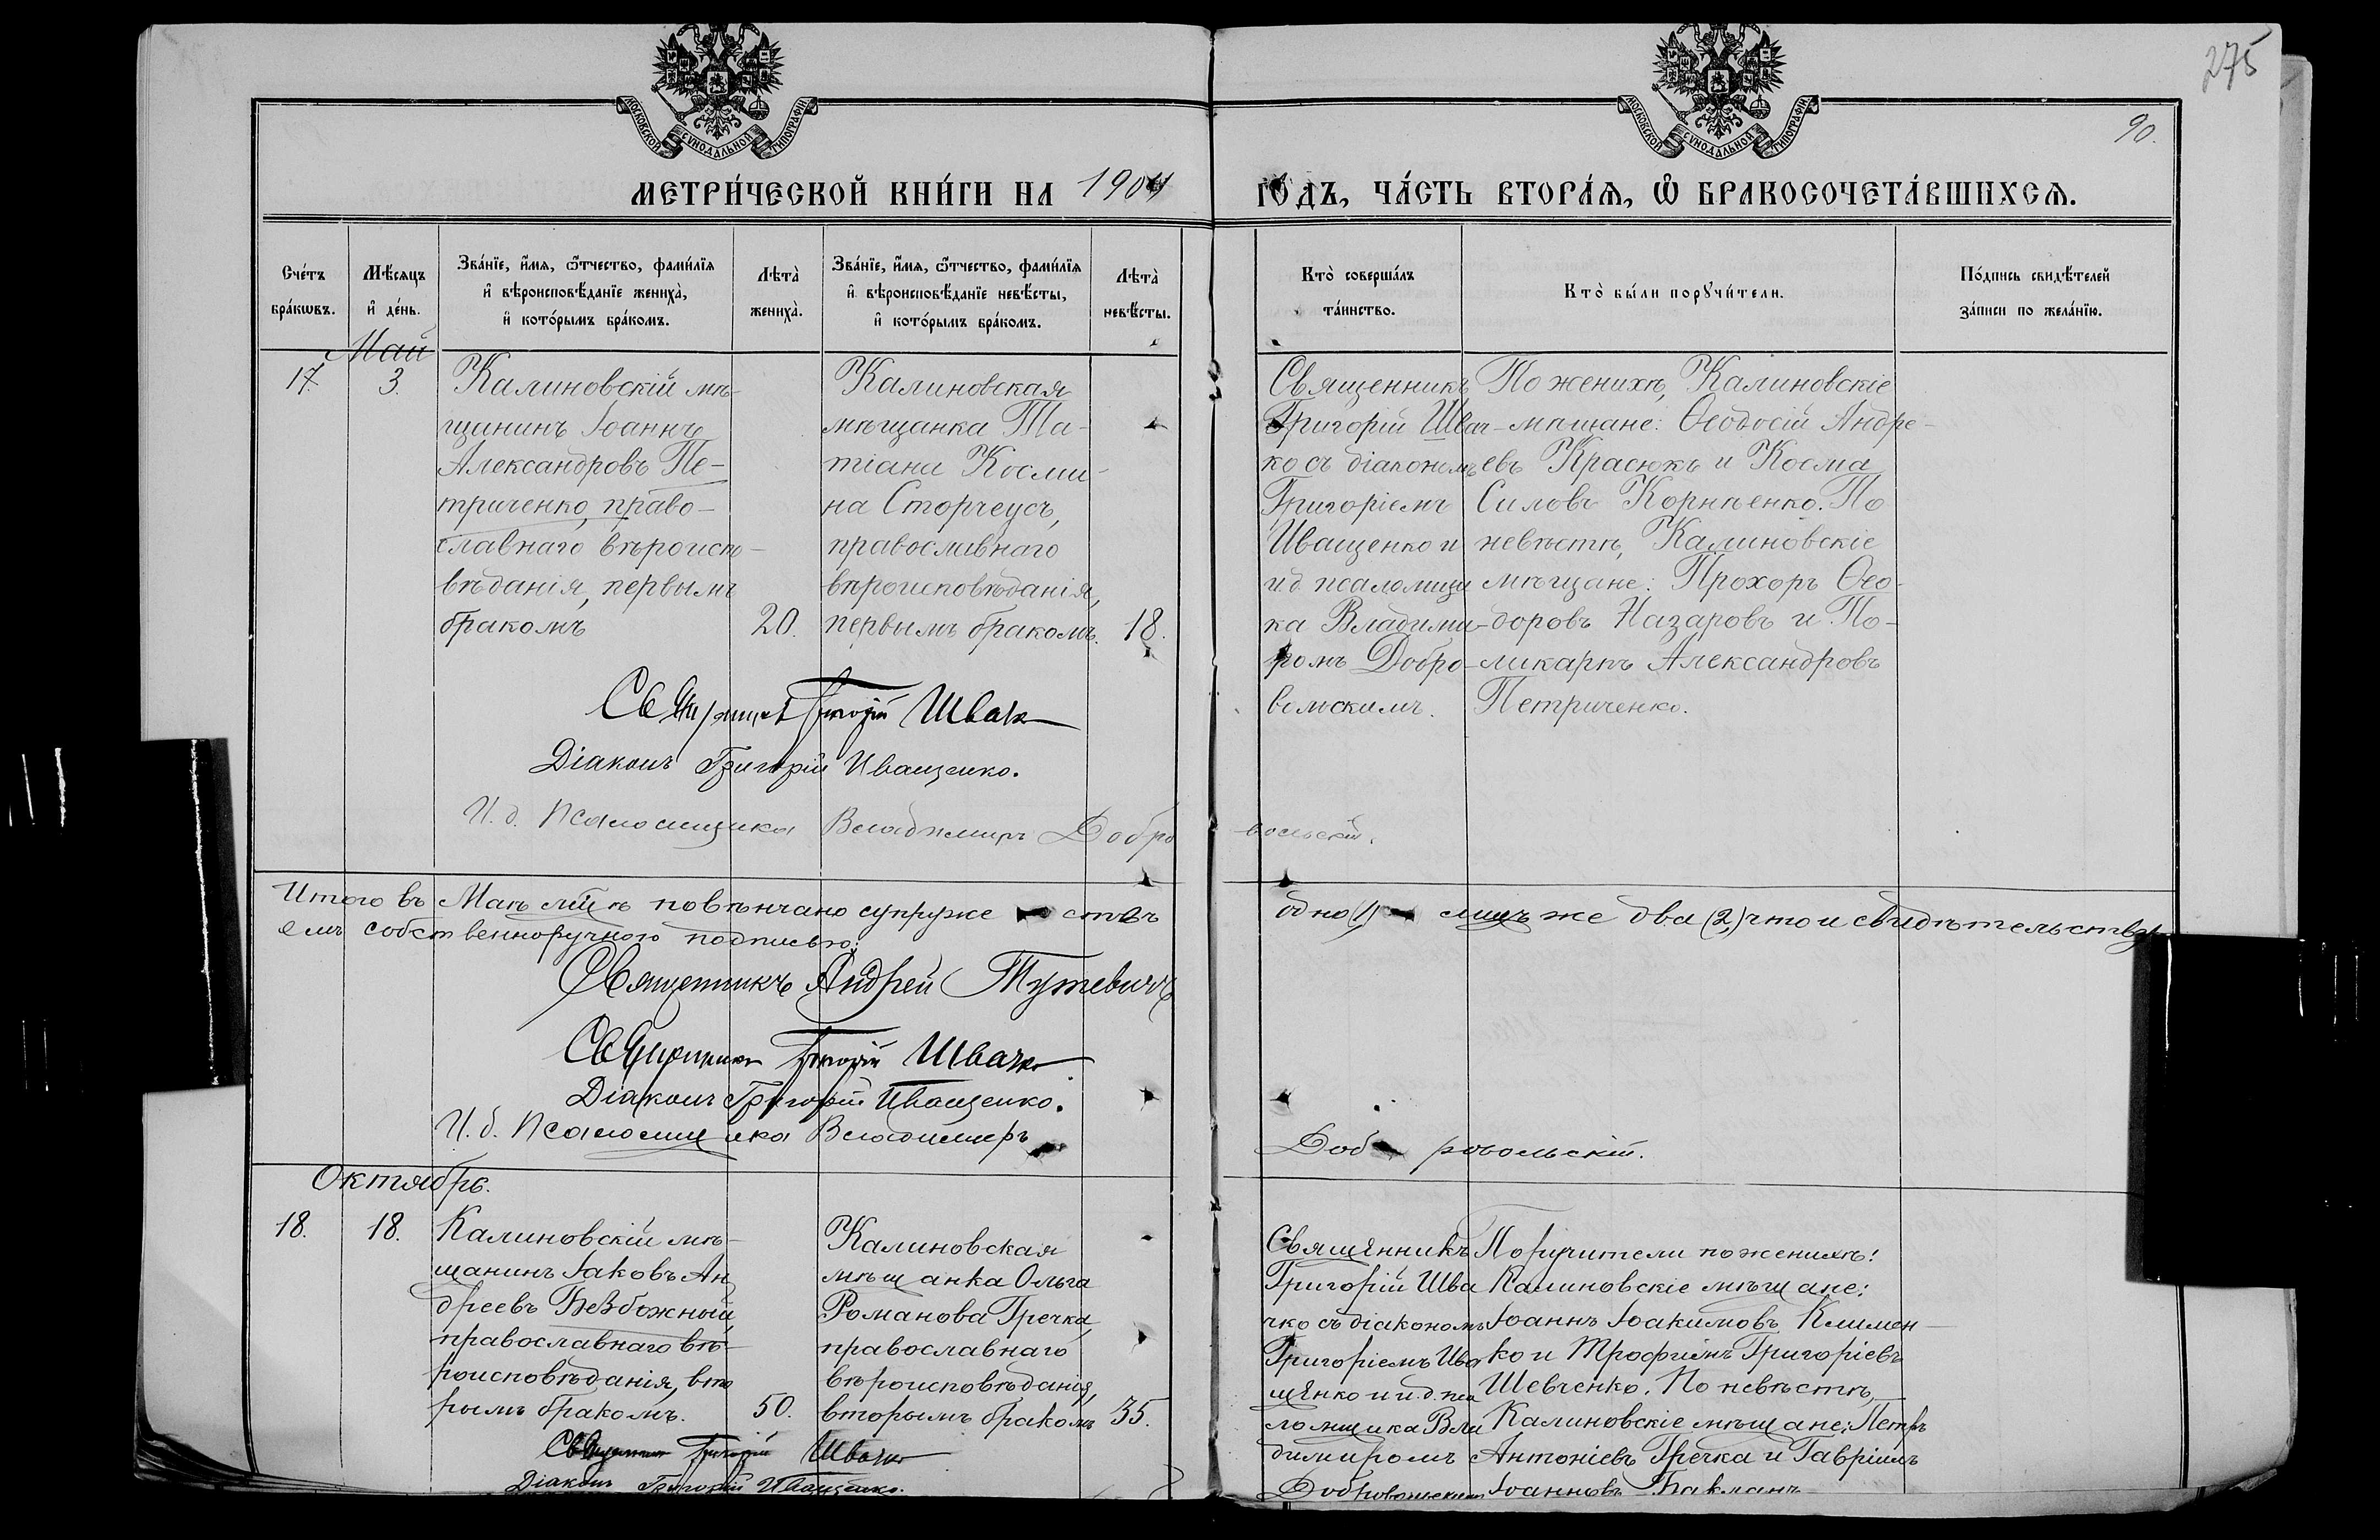 275
90.
МОСКОВСКОЙ СѴНОДАЛЬНОЙ ТИПОГРАФІИ
МОСКОВСКОЙ СѴНОДАЛЬНОЙ ТИПОГРАФІИ
МЕТРИ́ЧЕСКОЙ КНИ́ГИ НА 1904 ГО́ДЪ, ЧА́СТЬ ВТОРА́Я, Ѡ҆ БРАКОСОЧЕТА́ВШИХСЯ.
Сче́тъ
бра́кѡвъ.
Мѣ́сяцъ
и҆ де́нь.
Зва́нїе, и҆́мя, ѻ҆́тчество, фами́лїя
и҆ вѣроисповѣ́данїе жениха̀,
и҆ кото́рымъ бра́комъ.
Лѣта̀
жениха̀.
Зва́нїе, и҆́мя, ѻ҆́тчество, фами́лїя
и҆ вѣроисповѣ́данїе невѣ́сты,
и҆ кото́рымъ бра́комъ.
Лѣта̀
невѣ́сты.
Кто̀ соверша́лъ
та́инство.
Кто̀ бы́ли порꙋчи́тели.
По́дпись свидѣ́телей
за́писи по жела́нїю.
Май
17.
3.
Калиновскій мѣ-
щининъ Іоаннъ
Александровъ Пе-
триченко, право-
славнаго вѣроиспо-
вѣданія, первымъ
бракомъ
20.
Калиновская
мѣщанка Та-
тіана Косми-
на Сторчеусъ,
православнаго
вѣроисповѣданія,
первымъ бракомъ.
18.
Священникъ
Григорій Швач-
ко съ діакономъ
Григоріемъ
Иващенко и
и.д. псаломщи
ка Владими-
ромъ Добро-
вольскимъ.
По женихѣ, Калиновскіе
мѣщане: Ѳеодосій Андре-
евъ Красюкъ и Косма
Силовъ Корнѣенко. По
невѣстѣ, Калиновскіе
мѣщане: Прохоръ Ѳео-
доровъ Назаровъ и По-
ликарпъ Александровъ
Петриченко.
Священникъ Григорій Швачко
Діаконъ Григорій Иващенко.
И. д. Псаломщика Владимиръ Добровольскій.
Итого въ Маѣ мѣсяцѣ повѣнчано супружествъ одно (1) лицъ же два (2), что и свидѣтельству
емъ собственноручного подписью:
Священникъ Андрей
Священникъ Григорій Швачко
Діаконъ Григорій Иващенко.
И. д. Псаломщика Владимиръ Добровольскій.
Октябрь.
18.
18.
Калиновскій мѣ-
щанинъ Іаковъ Ан
дреевъ Безбожный,
православнаго вѣ-
роисповѣданія, вто
рымъ бракомъ.
50.
Калиновская
мѣщанка Ольга
Романова Гречка,
православнаго
вѣроисповѣданія,
вторымъ бракомъ
35.
Священникъ
Григорій Шва
чко съ діакономъ
Григоріемъ Ива
щенко и и.д. пса
ломщика Вла
димиромъ
Добровольскимъ
Поручители по женихѣ:
Калиновскіе мѣщане:
Іоаннъ Іоакимовъ Климен-
ко и Трофимъ Григоріевъ
Шевченко. По невѣстѣ,
Калиновскіе мѣщане: Петръ
Антоніевъ Гречка и Гавріилъ
Іоанновъ Бакланъ
Священникъ Григорій Швачко
Діаконъ Григорій Иващенко.